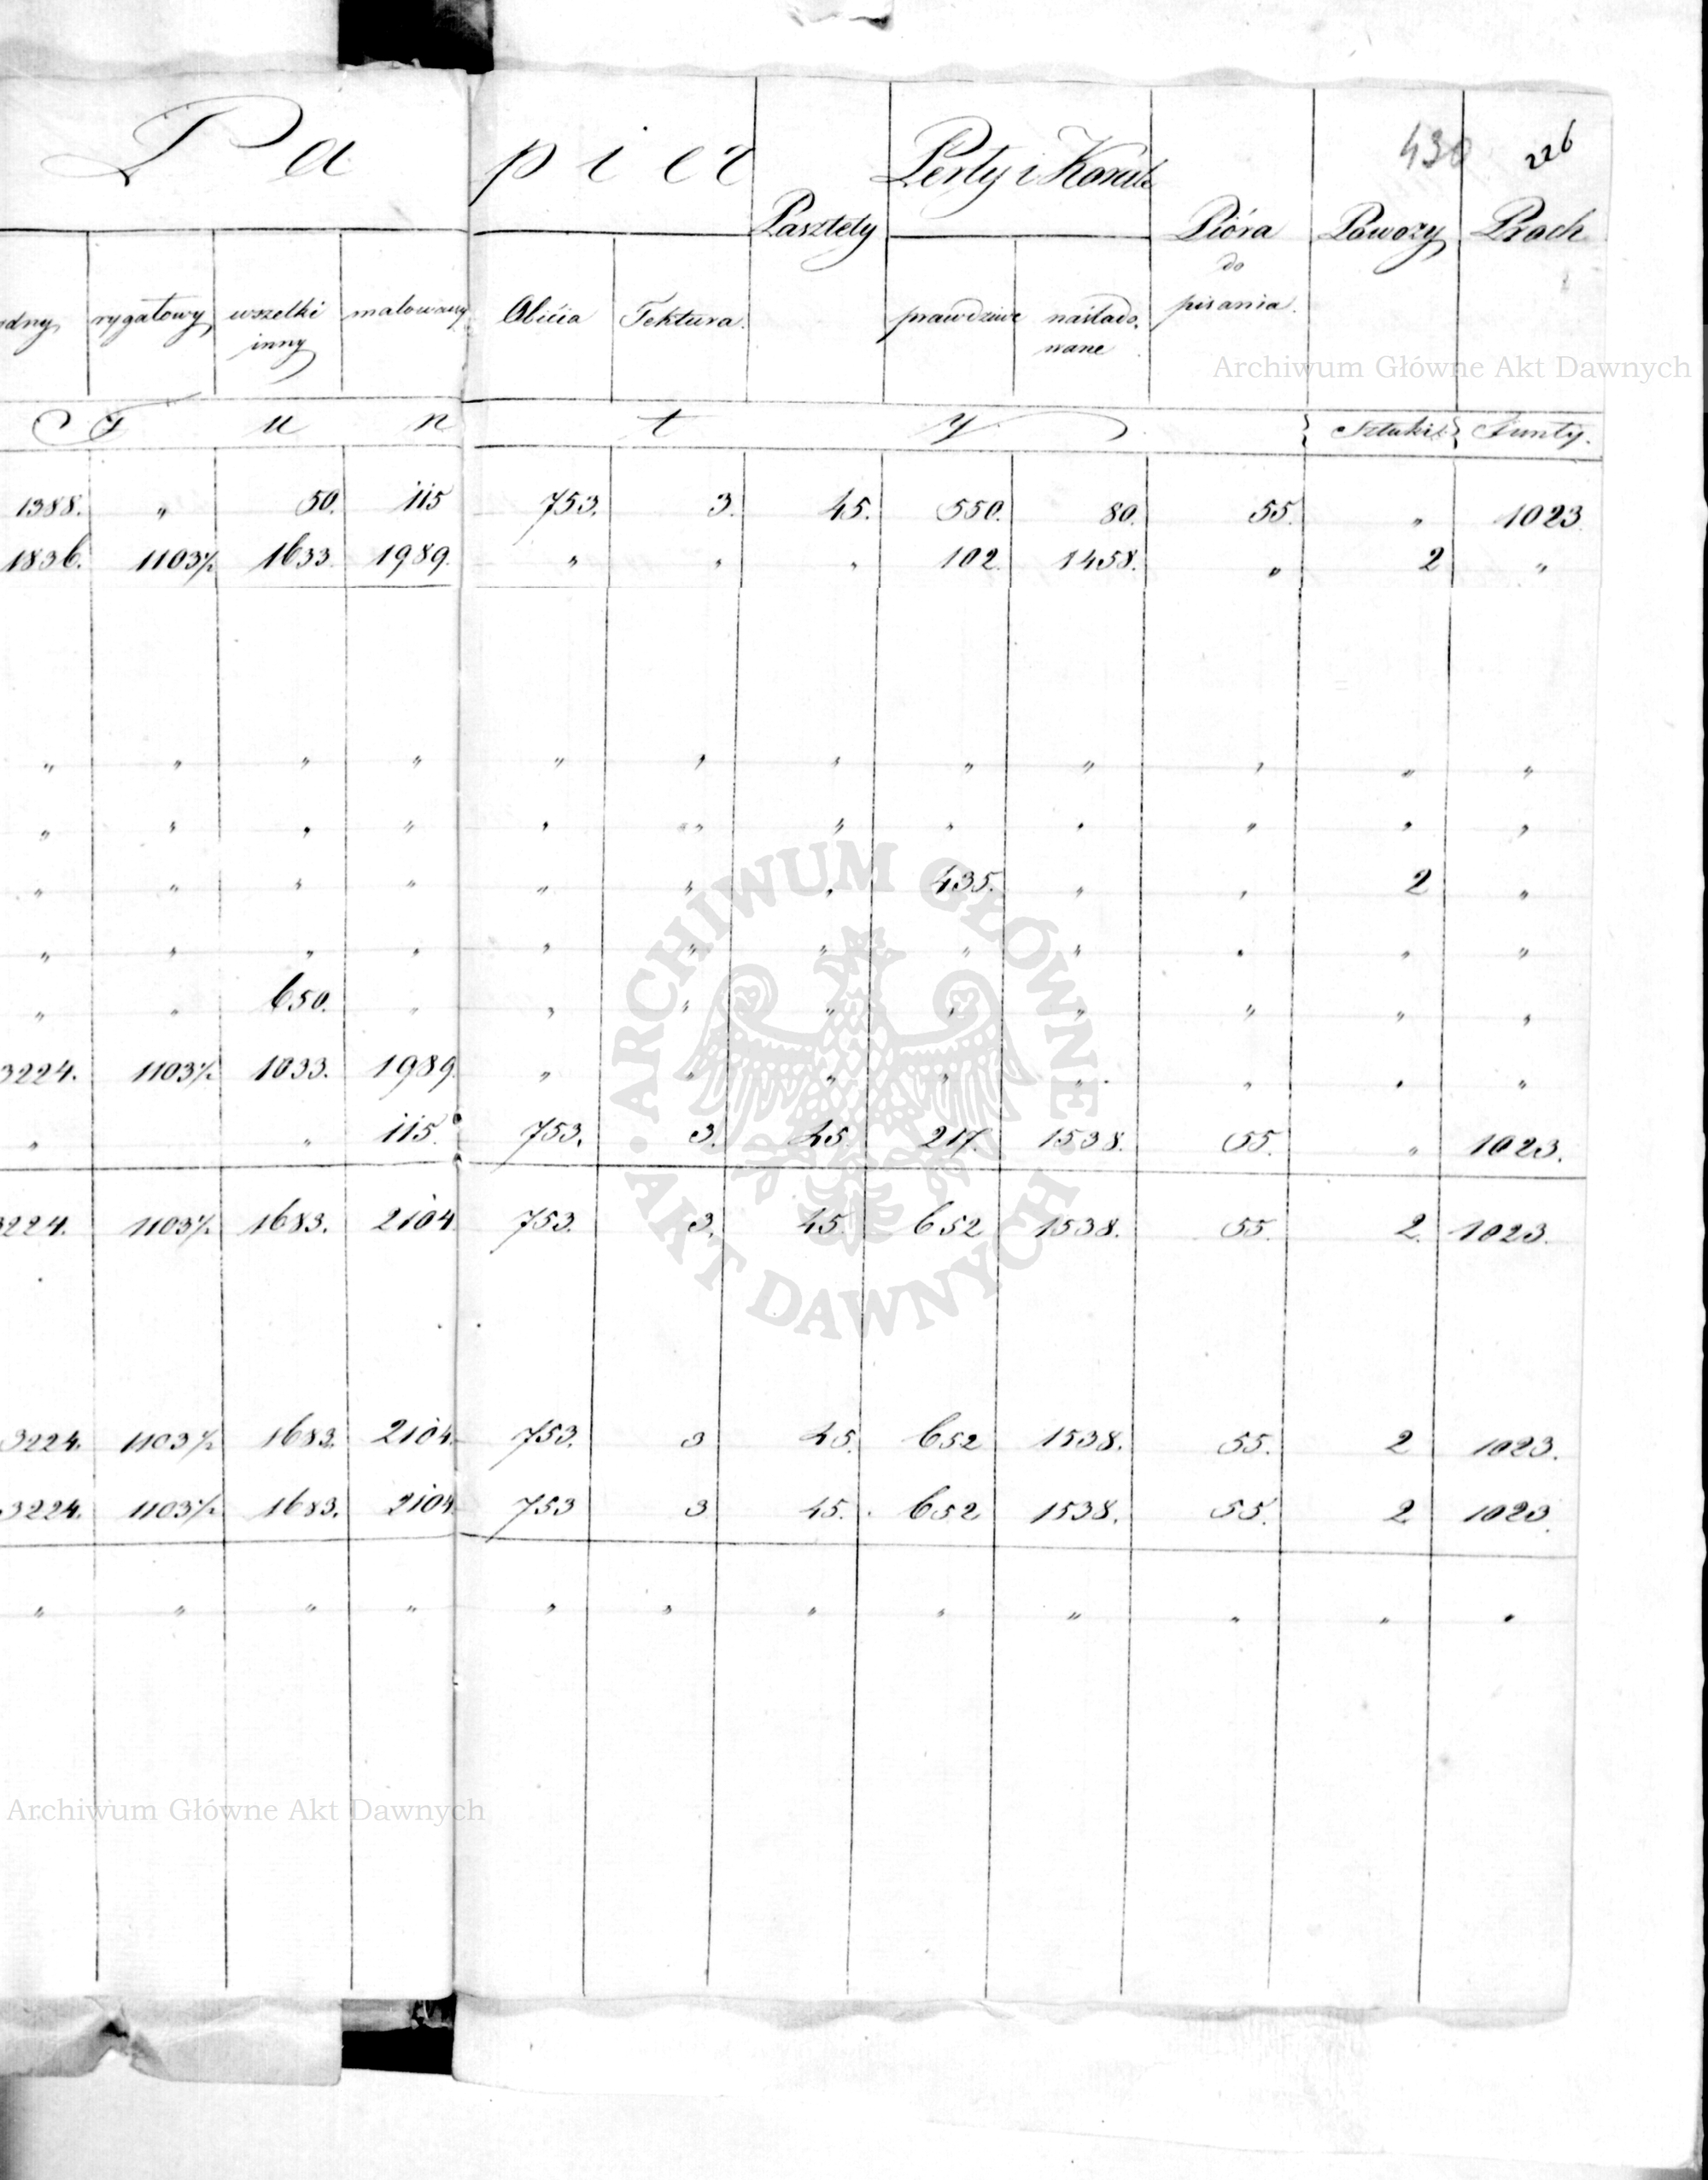 430 226
Papier Pasztety Perły i Korale Pióra do pisania. Powozy Proch
rygałowy wszelki inny malowany Obicia Tektura. prawdziwe naślado. wane
Funty Sztuki Funty.
1388. " 50. 115 753. 3. 45. 550. 80. 55. " 1023
1836. 1103½ 1633. 1989. " " " 102. 1458. " 2 "
" " " " " " " " " " " "
" " " " " " " " " " " "
" " " " " " " 435. " " 2 "
" " " " " " " " " " " "
" " 650. " " " " " " " " "
3224. 1103½ 1033. 1989. " " " " " " " "
" " 115. 753. 3. 45. 217. 1538. 55. " 1023.
3224. 1103½ 1683. 2104. 753. 3. 45. 652 1538. 55. 2. 1023.
3224. 1103½ 1683. 2104. 753. 3 45. 652 1538. 55. 2 1023.
3224. 1103½ 1683. 2104. 753 3 45. 652 1538. 55. 2 1023.
" " " " " " " " " " " "
Archiwum Główne Akt Dawnych
ARCHIWUM GŁÓWNE AKT DAWNYCH
Archiwum Główne Akt Dawnych